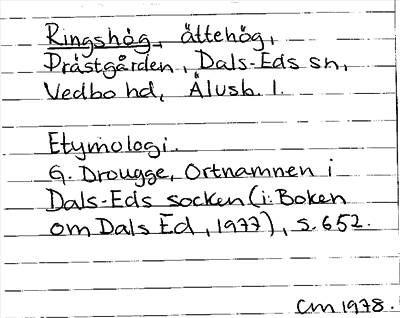 Ringshög, ättehög,
Dråstgården, Dals-Eds sn,
Vedbo hd, Älvsb. l.
Etymologi.
G. Drougge, Ortnamnen i
Dals-Eds socken (i: Boken
om Dals Ed, 1977), s. 652.
CM 1978.